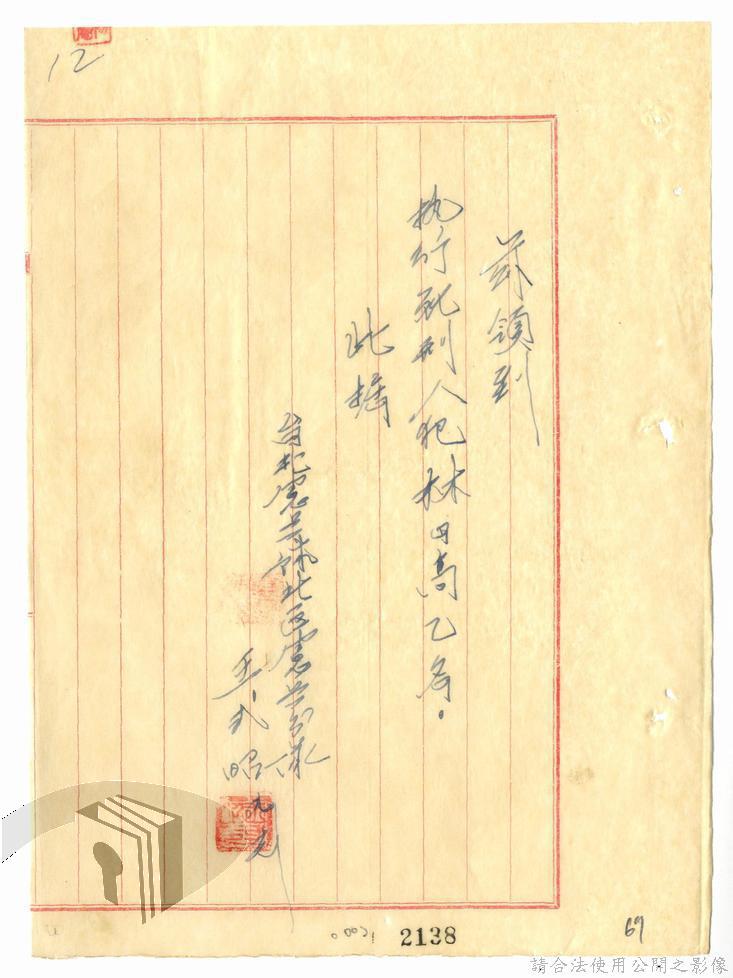 12
茲領到
执行死刑人犯林日高乙名。
此據
台北憲兵隊北區憲兵分隊
王式昭
2138
69
請合法使用公開之影像